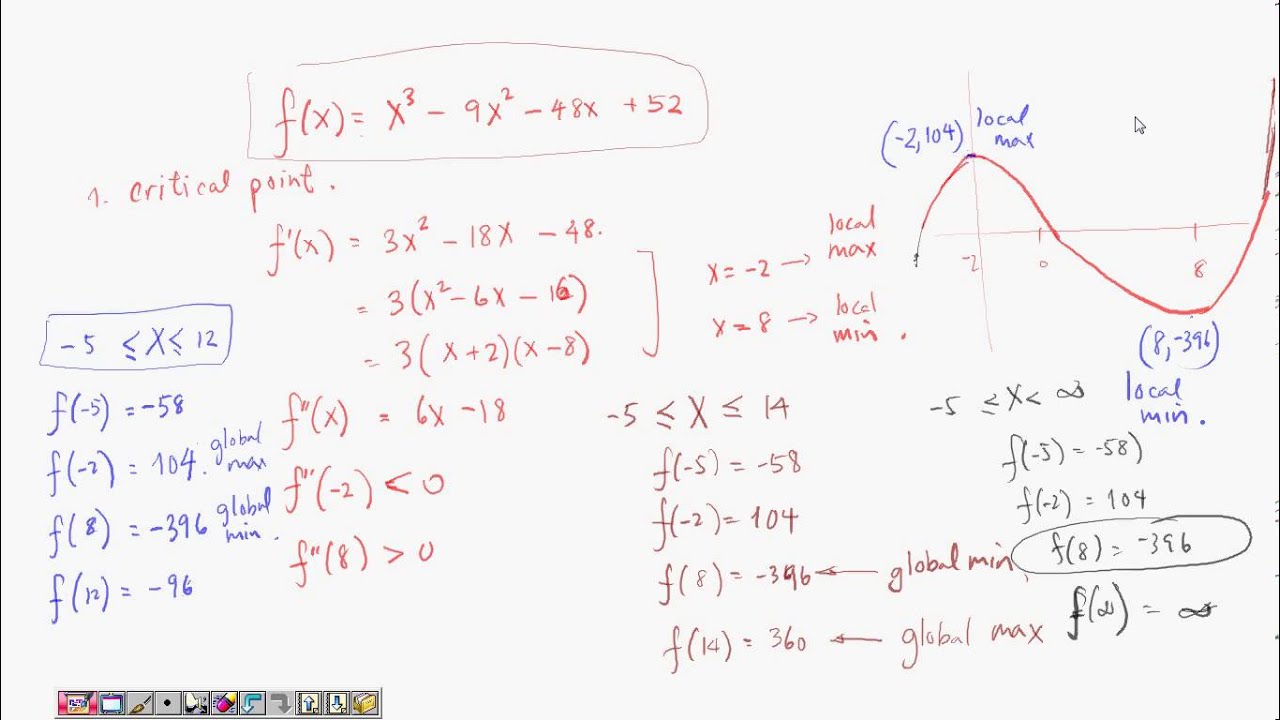 f(x) = x³ - 9x² - 48x + 52
1. critical point.
f'(x) = 3x² - 18x - 48.
= 3(x² - 6x - 16)
= 3(x+2)(x-8)
f''(x) = 6x - 18
f''(-2) < 0
f''(8) > 0
x = -2 → local max
x = 8 → local min.
(-2, 104) local max
-2 0 8
(8, -396)
local min.
-5 ≤ x ≤ 12
f(-5) = -58
f(-2) = 104. global max
f(8) = -396 global min.
f(12) = -96
-5 ≤ x ≤ 14
f(-5) = -58
f(-2) = 104
f(8) = -396 ← global min
f(14) = 360 ← global max
-5 ≤ x < ∞
f(-5) = -58)
f(-2) = 104
f(8) = -396
f(∞) = ∞